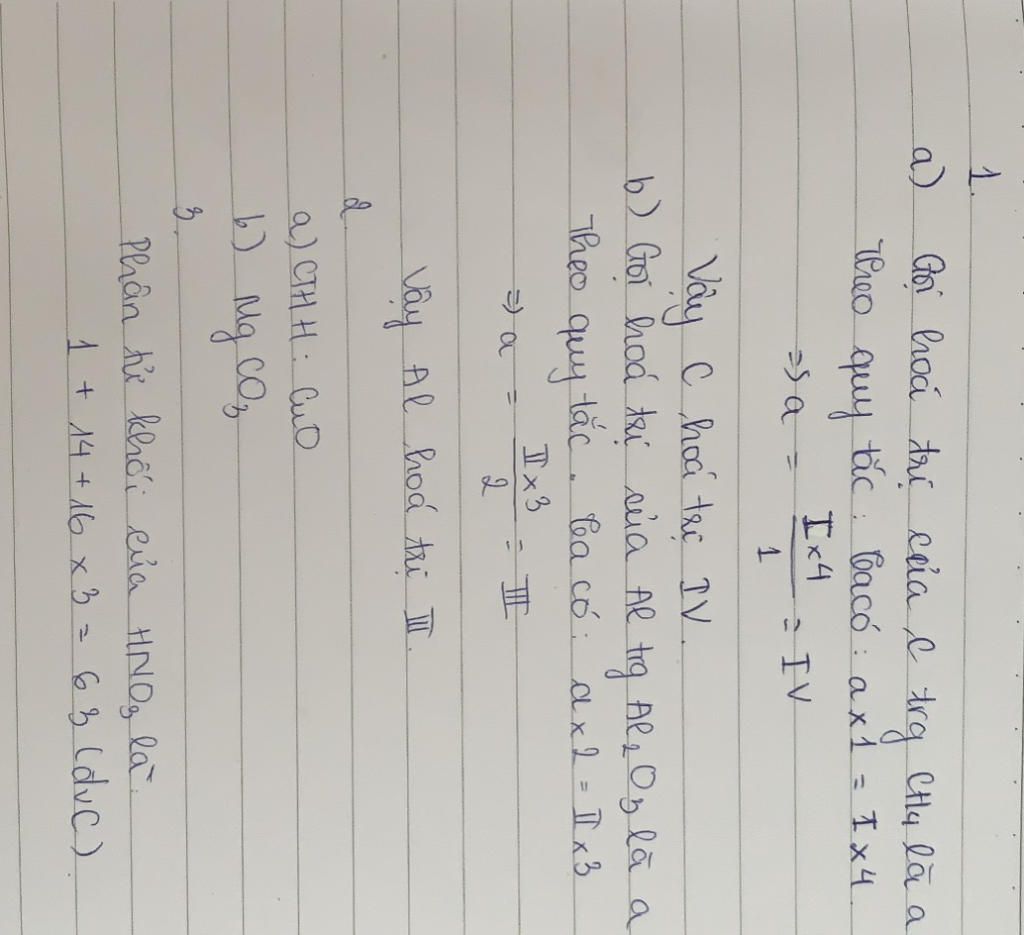 1.
a) Gọi hoá trị của C trg CH₄ là a
Theo quy tắc : ta có : a x 1 = I x 4
=> a = I x 4 / 1 = IV
Vậy C hoá trị IV.
b) Gọi hoá trị của Al trg Al₂O₃ là a
Theo quy tắc . ta có : a x 2 = II x 3
=> a = II x 3 / 2 = III
Vậy Al hoá trị III.
2
a) CTHH : CuO
b) MgCO₃
3.
Phân tử khối của HNO₃ là :
1 + 14 + 16 x 3 = 63 (đvC)